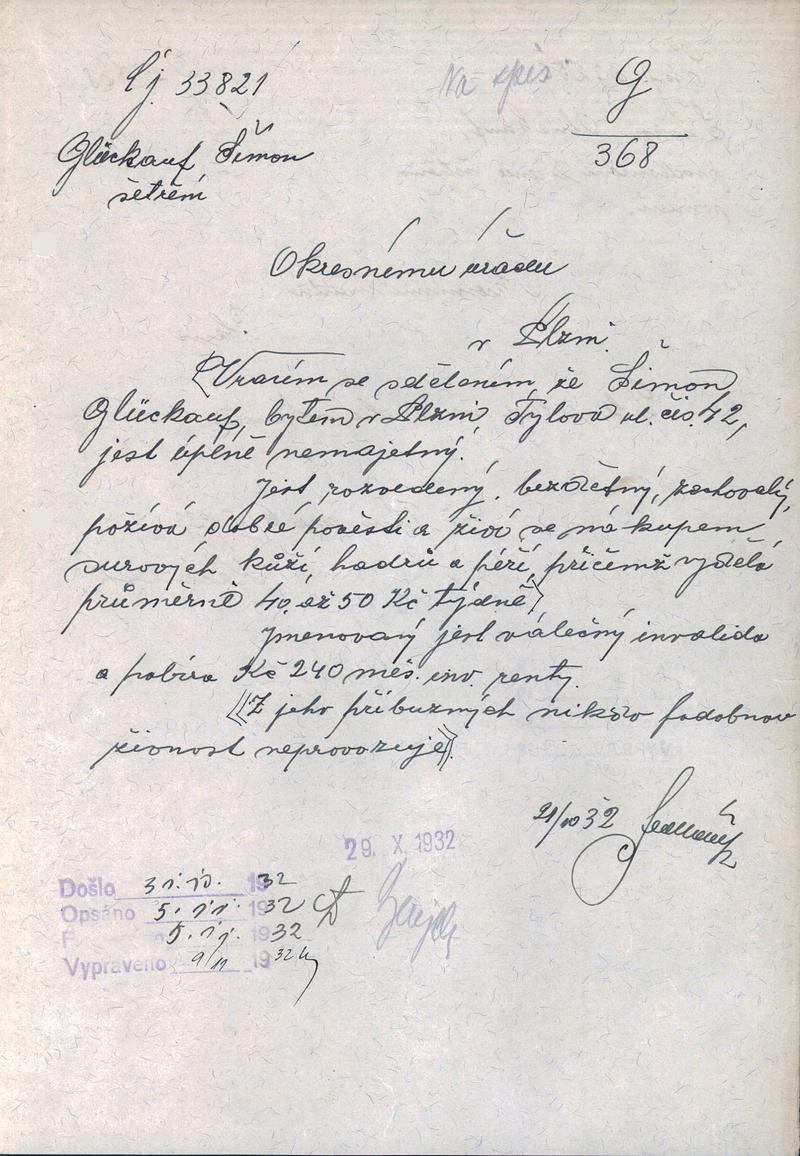 Čj. 33821
Na spis
G
368
Glückauf Šimon
šetření
Okresnímu úřadu
v Plzni.
Vracím se sdělením, že Šimon
Glückauf, bytem v Plzni Tylova ul. čís. 42,
jest úplně nemajetný.
Jest rozvedený, bezdětný, zachovalý,
požívá dobré pověsti a živí se nákupem
surových kůží, hadrů a péří, přičemž vydělá
průměrně 40 až 50 Kč týdně.
Jmenovaný jest válečný invalida
a pobírá Kč 240 měs. inv. renty.
Z jeho příbuzných nikdo podobnou
živnost neprovozuje.
21/10 32
29. X. 1932
Došlo 31. 10. 1932
Opsáno 5. 11. 1932
5. 11. 1932
Vypraveno 9/11 1932